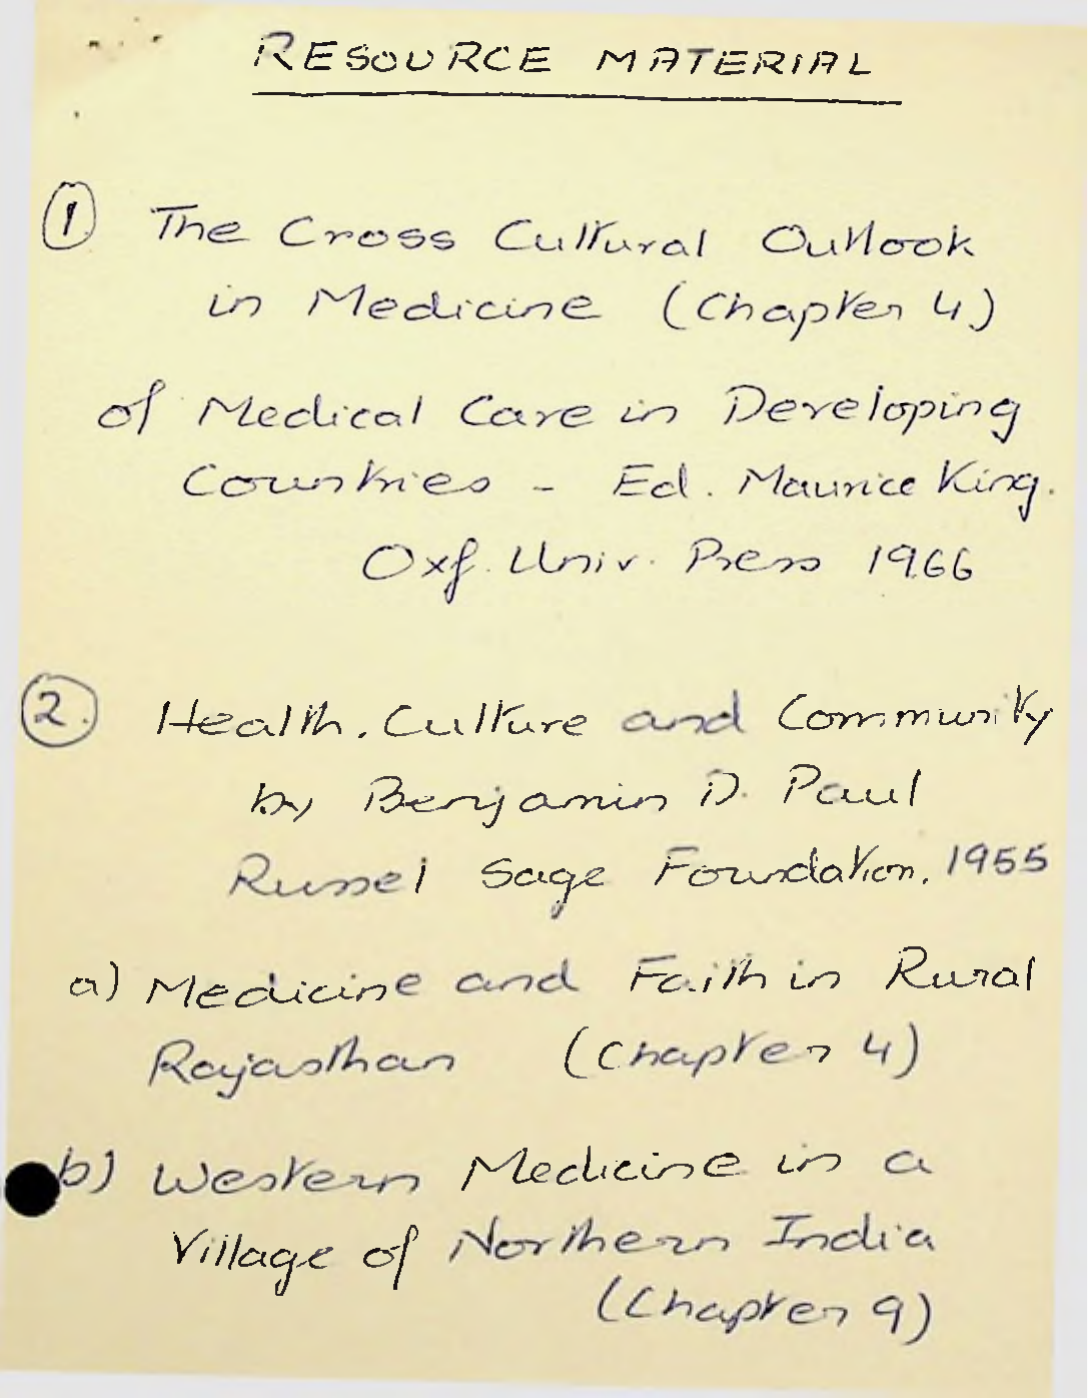 RESOURCE MATERIAL
1. The Cross Cultural Outlook
in Medicine (Chapter 4)
of Medical Care in Developing
Countries - Ed. Maurice King.
Oxf. Univ. Press 1966
2. Health, Culture and Community
by Benjamin D. Paul
Russel Sage Foundation, 1955
a) Medicine and Faith in Rural
Rajasthan (Chapter 4)
b) Western Medicine in a
Village of Northern India
(Chapter 9)